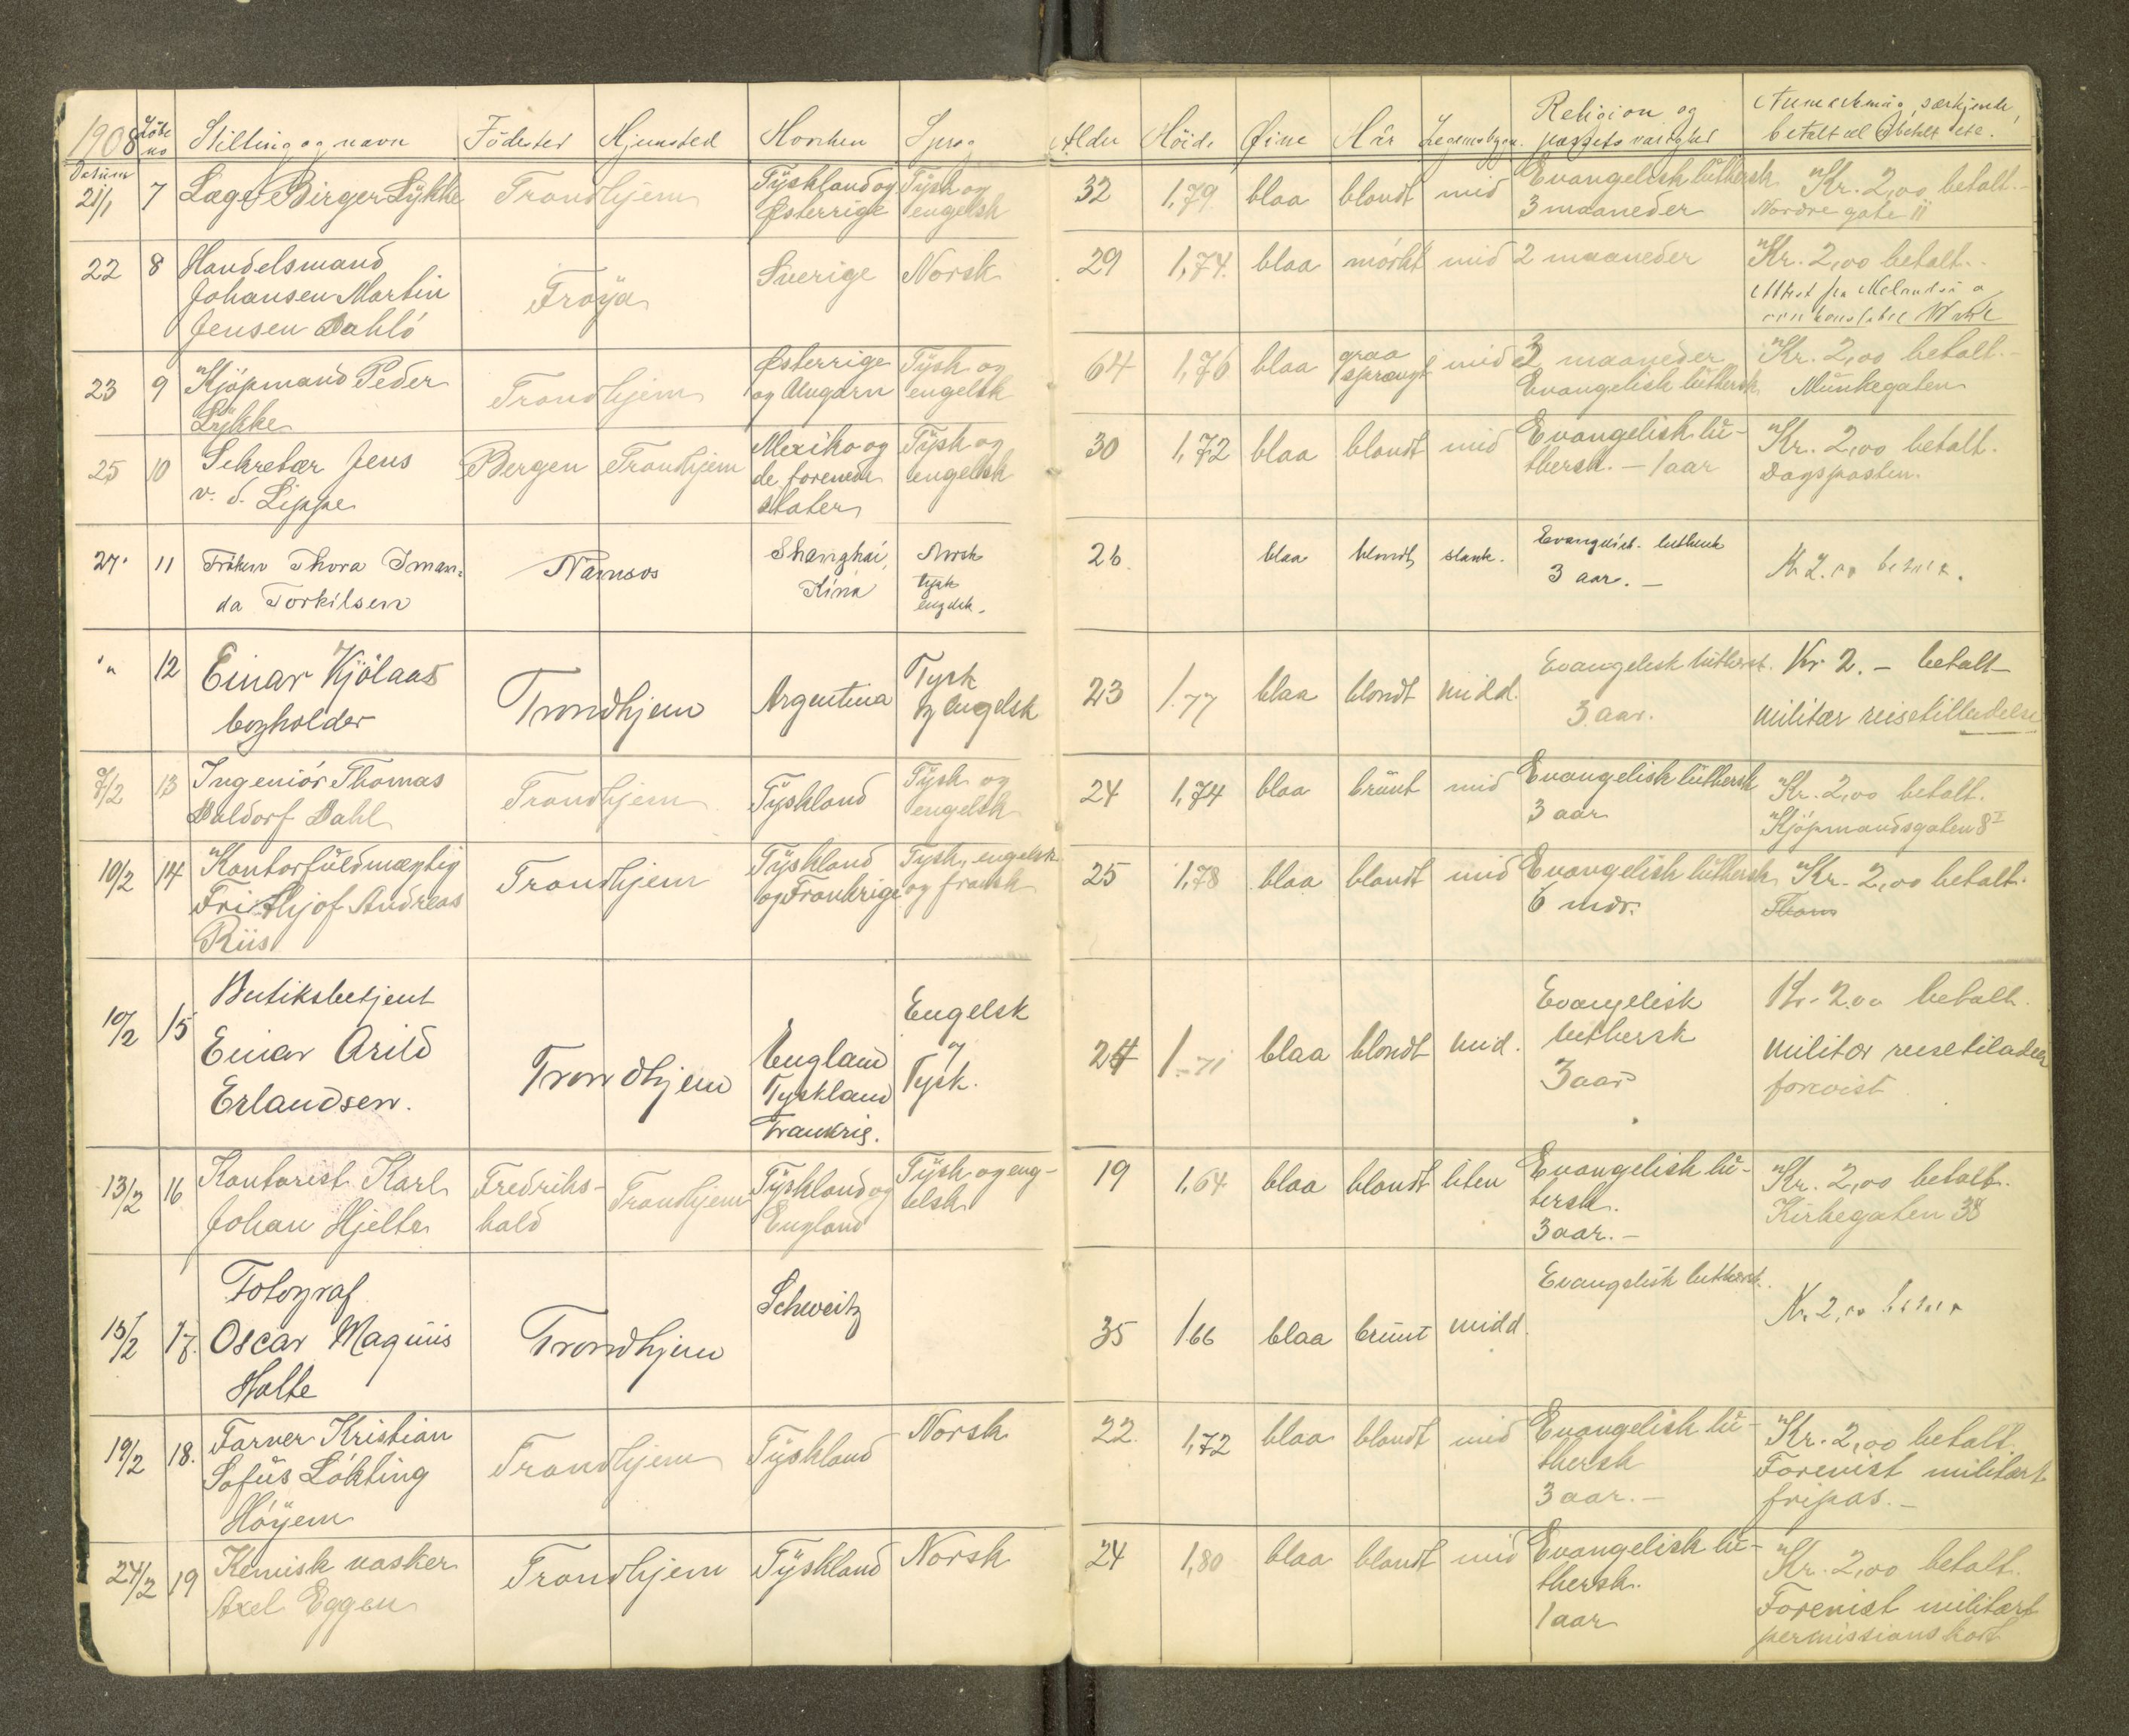 1908 Löbe no Stilling og navn Födested Hjemsted Hvorhen Sprog Alder Höide Øine Hår Legemsbygn. Religion og passets varighed Anmerkning, særkjende, betalt el ubetalt etc.
Datum
21/1 7 Læge Birger Lykke Trondhjem Tyskland og Østerrige Tysk og engelsk 32 1,79 blaa blondt mid Evangelisk luthersk 3 maaneder Kr. 2,00 betalt. Nordre gate 11
22 8 Handelsmand Johansen Martin Jensen Dahlö Fröya Sverige Norsk 29 1,74. blaa mörkt mid 2 maaneder Kr. 2,00 betalt. Attest fra
23 9 Kjöpmand Peder Lykke Trondhjem Østerrige og Ungarn Tysk og engelsk 64 1,76 blaa graa sprængt mid 3 maaneder Evangelisk luthersk Kr. 2,00 betalt. Munkegaten
25 10 Sekretær Jens v. d. Lippe Bergen Trondhjem Mexiko og de forenede stater Tysk og engelsk 30 1,72 blaa blondt mid Evangelisk luthersk. – 1 aar Kr. 2,00 betalt. Dagsposten.
27. 11 Fröken Thora Imanda Torkilsen Namsos Shanghai, Kina Norsk tysk engelsk. 26. blaa blondt slank. Evangelisk luthersk 3 aar. – Kr 2.00 betalt.
" 12 Einar Kjölaas bogholder Trondhjem Argentina Tysk og Engelsk 23 1.77 blaa blondt midd. Evangelisk luthersk. 3 aar. Kr 2. – betalt militær reisetilladelse
7/2 13 Ingeniör Thomas Daldorf Dahl Trondhjem Tyskland Tysk og engelsk 24 1,74 blaa brunt mid Evangelisk luthersk 3 aar Kr. 2,00 betalt. Kjöpmandsgaten 8 I
10/2 14 Kontorfuldmægtig Frithjof Andreas Riis Trondhjem Tyskland og Frankrige Tysk, engelsk og fransk 25 1,78 blaa blondt mid Evangelisk luthersk 6 mdr. Kr. 2,00 betalt.
10/2 15 Butiksbetjent Einar Arild Erlandsen. Trondhjem England Tyskland Frankrig. Engelsk og Tysk. 24 1.71 blaa blondt mid. Evangelisk luthersk 3 aar Kr. 2.00 betalt. Militær reisetiladelse forevist
13/2 16 Kontorist Karl Johan Hjelte Fredrikshald Trondhjem Tyskland og England Tysk og engelsk 19 1,64 blaa blondt liten Evangelisk lutersk. 3 aar. – Kr. 2,00 betalt. Kirkegaten 38
15/2 17. Fotograf Oscar Magnus Halte Trondhjem Schweitz 35 1.66 blaa brunt midd. Evangelisk luthersk. Kr. 2,00 betalt
19/2 18. Farver Kristian Sofus Lökting Höyem Trondhjem Tyskland Norsk 22. 1,72 blaa blondt mid Evangelisk luthersk 3 aar. – Kr. 2,00 betalt. Forevist militært fripas. –
24/2 19 Kemisk vasker Axel Eggen Trondhjem Tyskland Norsk 24 1,80 blaa blondt mid Evangelisk luthersk. 1 aar Kr. 2,00 betalt. Forevist militært permissionskort